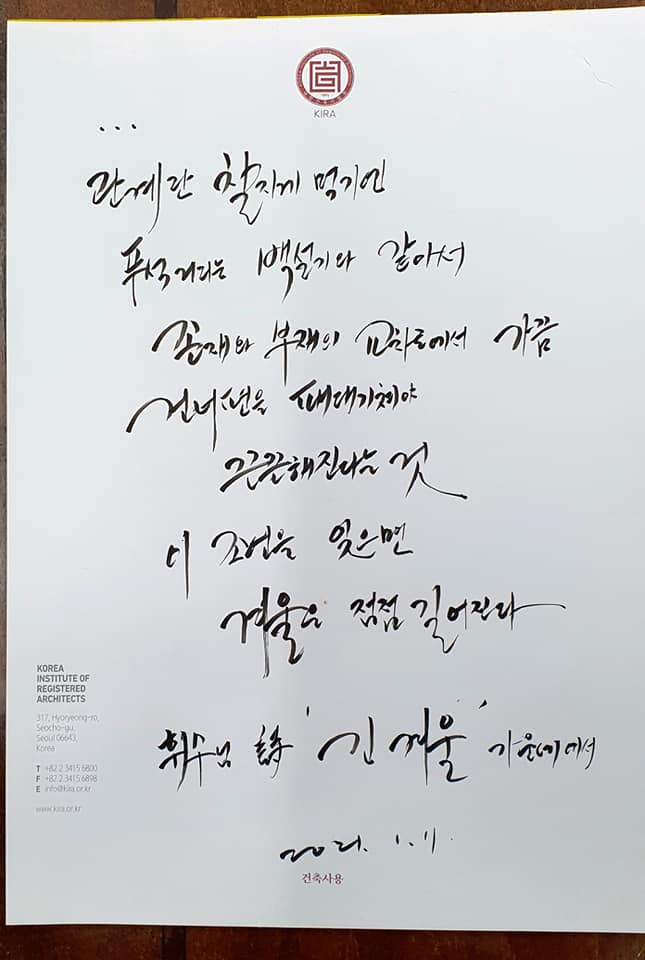 KIRA
...
관계란 찰지게 먹기엔
푸석거리는 백설기와 같아서
존재와 부재의 교차로에서 가끔
건너편을 패대기쳐야
끈끈해진다는 것
이 조언을 잊으면
겨울은 점점 길어진다
휘수님 詩 '긴 겨울' 가운데에서
2021. 1. 11.
건축사용
KOREA
INSTITUTE OF
REGISTERED
ARCHITECTS
317, Hyoryeong-ro,
Seocho-gu,
Seoul 06643,
Korea
T +82 2 3415 6800
F +82 2 3415 6898
E info@kira.or.kr
www.kira.or.kr